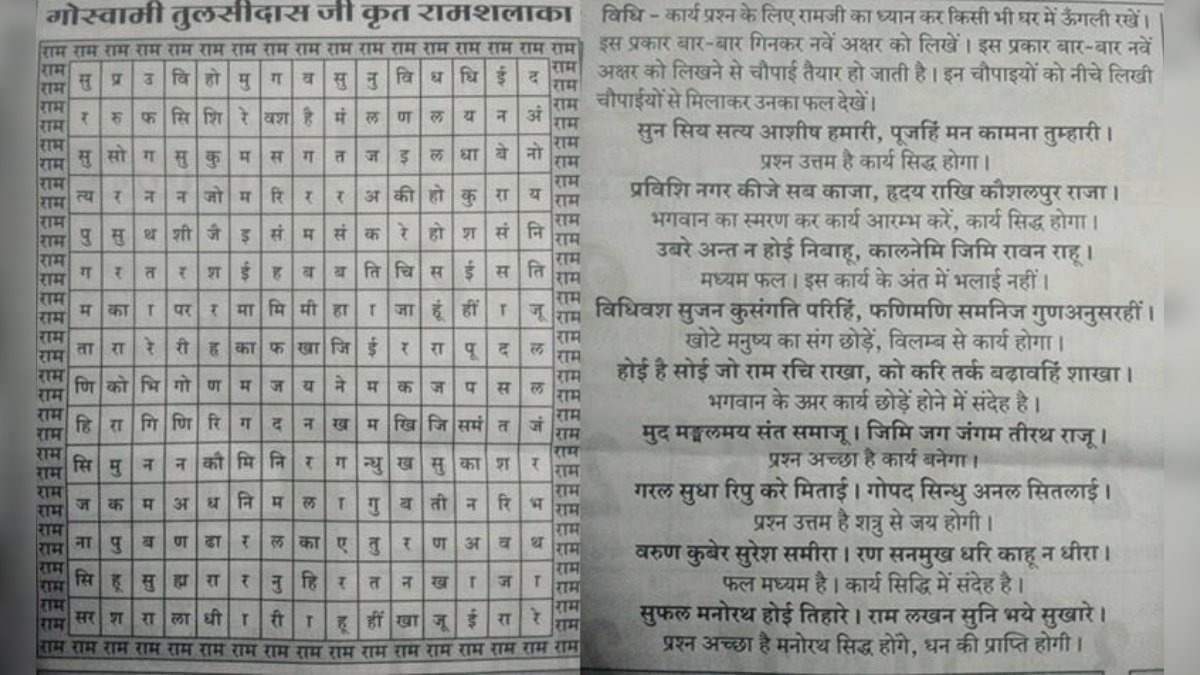 गोस्वामी तुलसीदास जी कृत रामशलाका
राम राम राम राम राम राम राम राम राम राम राम राम राम राम राम राम राम
राम सु प्र उ बि हो मु ग ब सु नु बि ध धि ई द राम
राम र रु फ सि शि रे वश है मं ल ण ल य न अं राम
राम सु सो ग सु कु म स ग त ज इ ल धा बे नो राम
राम त्य र न न जो म रि र र अ की हो कु रा य राम
राम पु सु थ शी जै इ सं म सं क रे हो श सं नि राम
राम ग र त र श ई ह ब ब ति चि स ई स ति राम
राम म का ा पर र मा मि मी हा ा जा हूं हीं ा जू राम
राम ता रा रे री ह का फ खा जि ई र रा पू द ल राम
राम णि को भि गो ण म ज य ने म क ज प स ल राम
राम हि रा गि णि रि ग द न ख म खि जि समं त जं राम
राम सि मु न न कौ मि नि र ग न्धु ख सु का श र राम
राम ज क म अ ध नि म ल ा गु ब ती न रि भ राम
राम ना पु ब ण ढा र ल का ए तु र ण अ व थ राम
राम सि हू सु ह्म रा र नु हि र त न ख ा ज ा राम
राम सर श रा ला धी ा री ा हू हीं खा जू ई रा रे राम
राम राम राम राम राम राम राम राम राम राम राम राम राम राम राम राम राम
विधि – कार्य प्रश्न के लिए रामजी का ध्यान कर किसी भी घर में ऊँगली रखें।
इस प्रकार बार-बार गिनकर नवें अक्षर को लिखें। इस प्रकार बार-बार नवें
अक्षर को लिखने से चौपाई तैयार हो जाती है। इन चौपाइयों को नीचे लिखी
चौपाईयों से मिलाकर उनका फल देखें।
सुन सिय सत्य आशीष हमारी, पूजहिं मन कामना तुम्हारी।
प्रश्न उत्तम है कार्य सिद्ध होगा।
प्रविशि नगर कीजे सब काजा, हृदय राखि कौशलपुर राजा।
भगवान का स्मरण कर कार्य आरम्भ करें, कार्य सिद्ध होगा।
उबरे अन्त न होई निबाहू, कालनेमि जिमि रावन राहू।
मध्यम फल। इस कार्य के अंत में भलाई नहीं।
विधिवश सुजन कुसंगति परिहिं, फणिमणि समनिज गुणअनुसरहीं।
खोटे मनुष्य का संग छोड़ें, विलम्ब से कार्य होगा।
होई है सोई जो राम रचि राखा, को करि तर्क बढ़ावहिं शाखा।
भगवान के उपर कार्य छोड़ें होने में संदेह है।
मुद मङ्गलमय संत समाजू। जिमि जग जंगम तीरथ राजू।
प्रश्न अच्छा है कार्य बनेगा।
गरल सुधा रिपु करे मिताई। गोपद सिन्धु अनल सितलाई।
प्रश्न उत्तम है शत्रु से जय होगी।
वरुण कुबेर सुरेश समीरा। रण सनमुख धरि काहू न धीरा।
फल मध्यम है। कार्य सिद्धि में संदेह है।
सुफल मनोरथ होई तिहारे। राम लखन सुनि भये सुखारे।
प्रश्न अच्छा है मनोरथ सिद्ध होंगे, धन की प्राप्ति होगी।